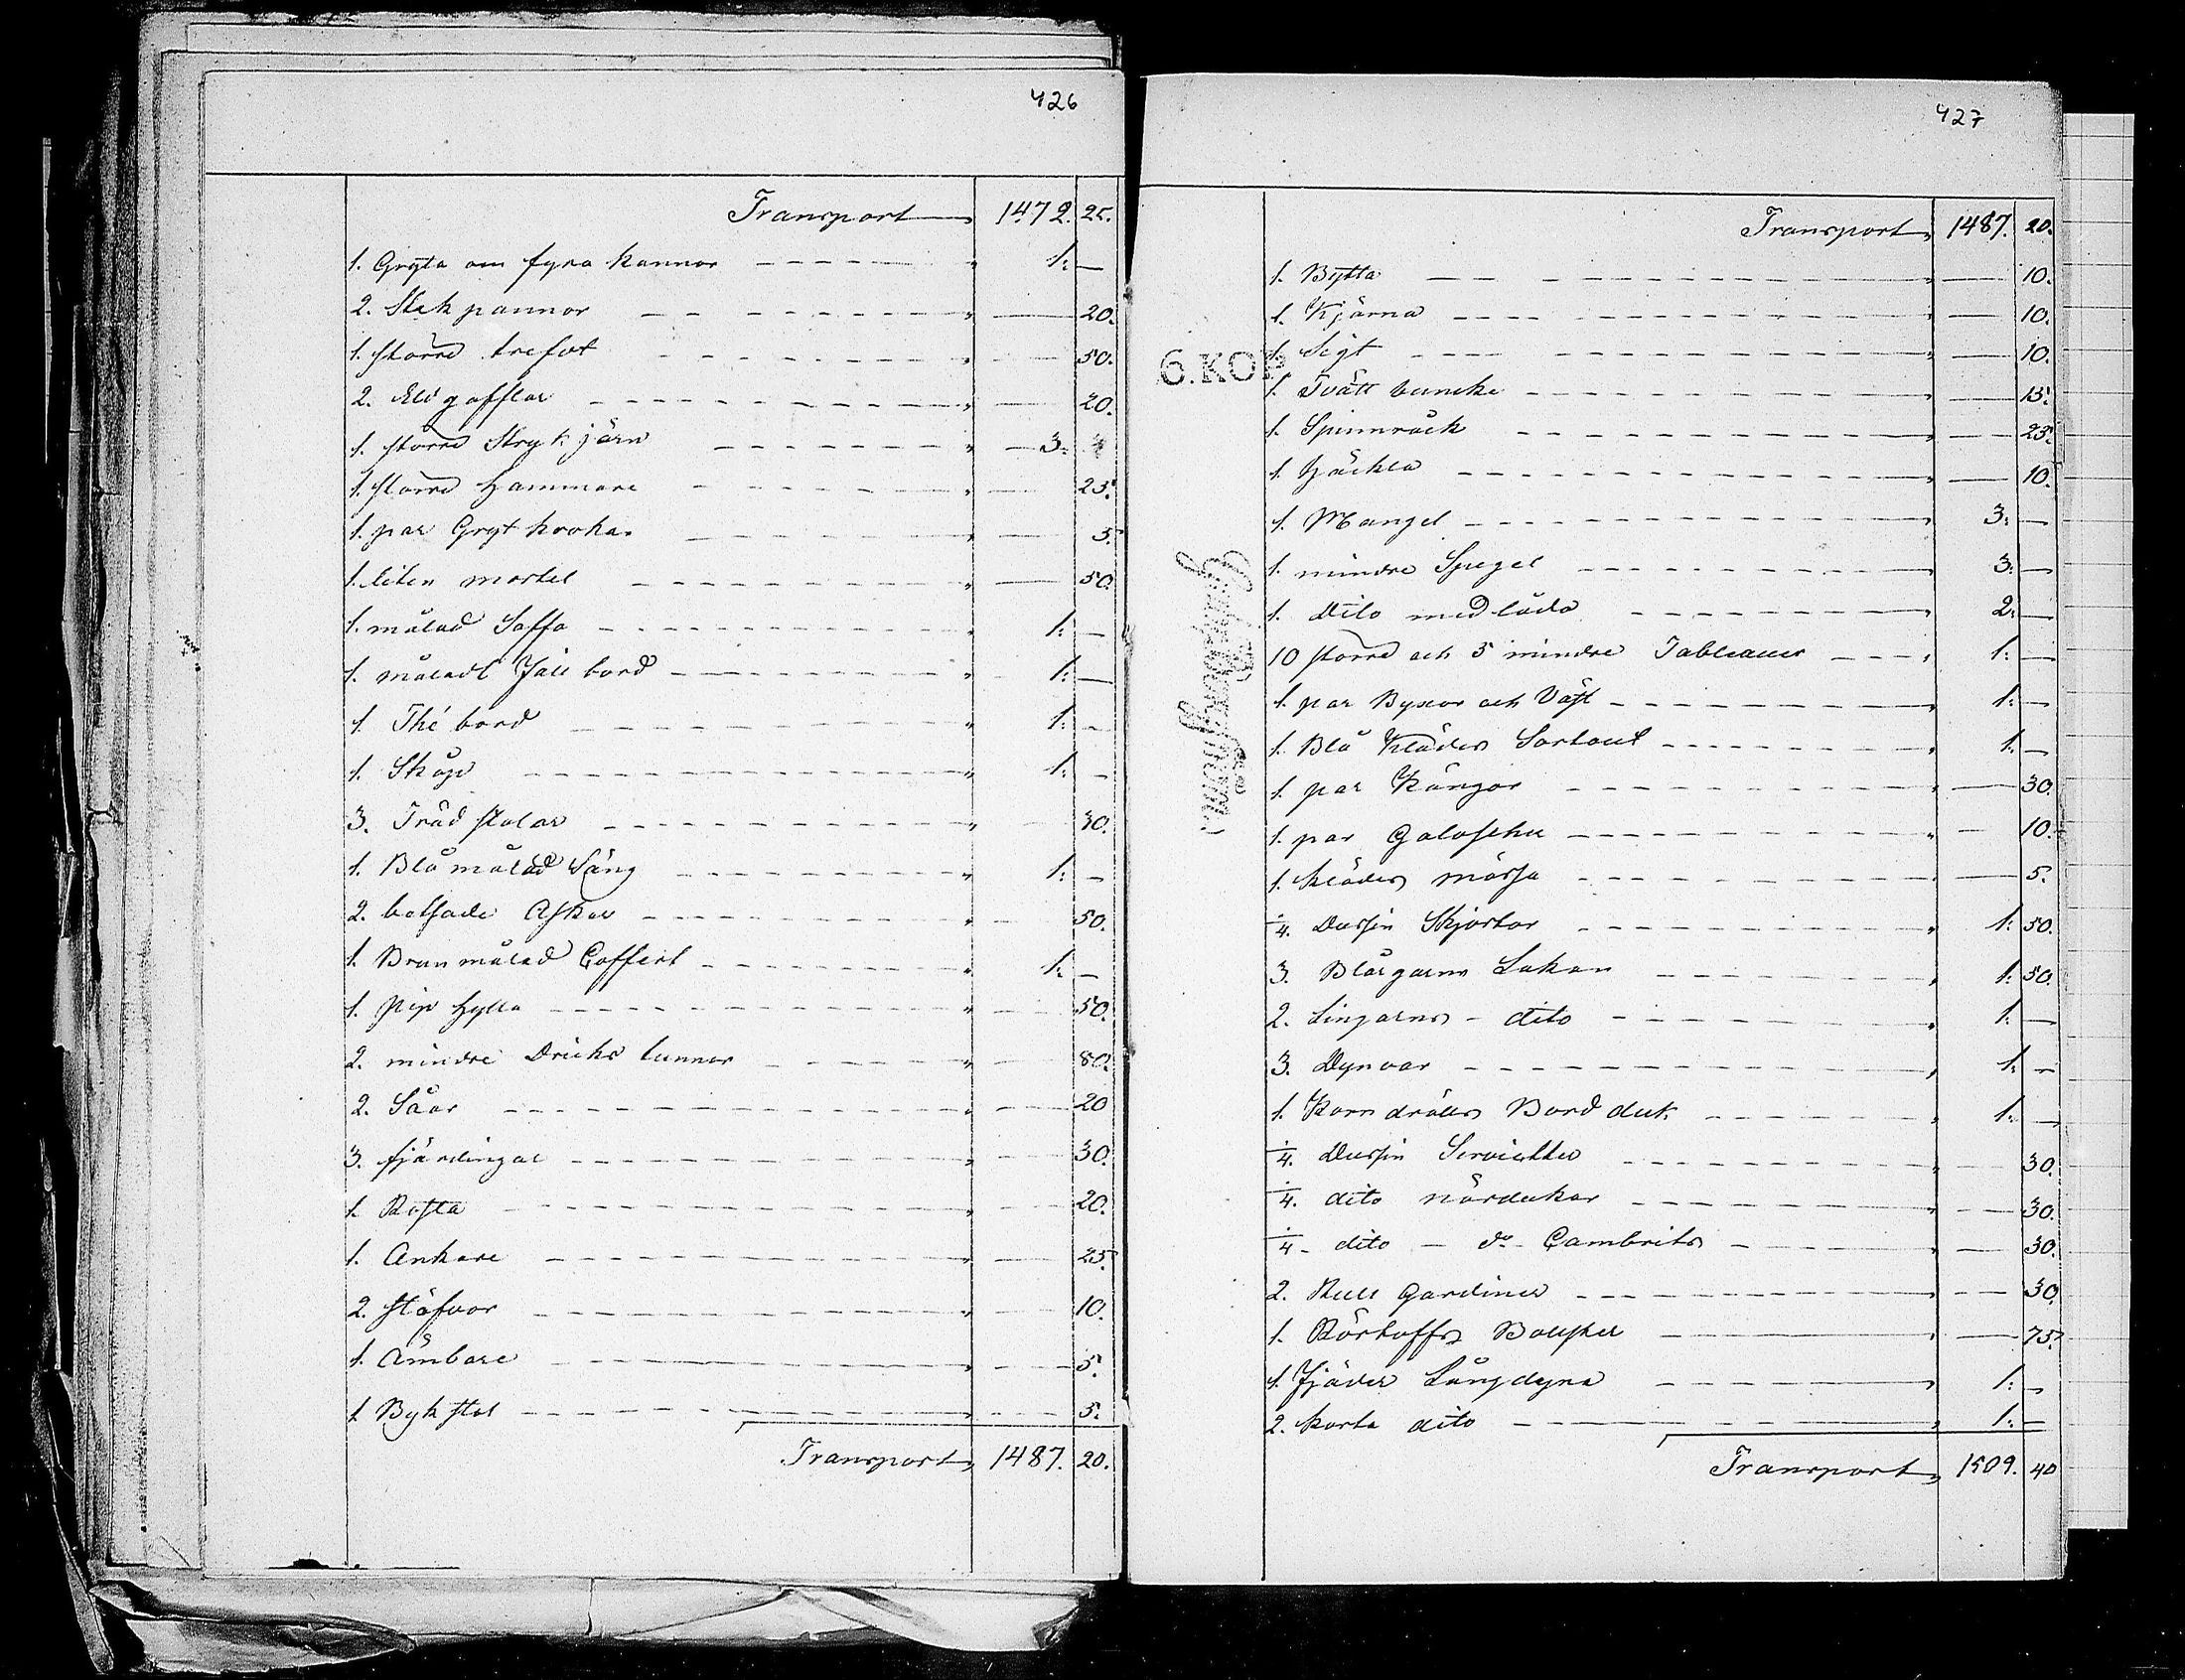 426
Transport 1472. 25.
1. Gryta om fyra kannor 1: —
2. Stek pannor — 20.
1. större trefot — 50.
2. Eldgafflar — 20.
1. större Strykjärn 3:
1. större Hammare — 25.
1. par Grytkrokar — 5.
1. liten mortel — 50.
1. målad Soffa 1: —
1. måladt Fäll bord 1: —
1. Thé bord 1: —
1. Skåp 1: —
3. Träd stolar — 30.
1. Blå målad Säng 1: —
2. betsade Askar — 50.
1. Brun målad Coffert 1: —
1. Pip Hylla — 50.
2. mindre Dricks tunnor — 80.
2. Såar — 20
3. fjärdingar — 30.
1. Rosta — 20.
1. Ankare — 25.
2. stäfvor — 10.
1. Ämbare — 5.
1. Bykstol — 5.
Transport 1487. 20.
427
Transport 1487. 20.
1. Bytta — 10.
1. Kjärna — 10.
6. KOP
1. Sigt — 10.
1. Tvätt buncke — 15.
1. Spinnråck — 25.
1. Häckla — 10.
1. Mangel 3: —
1. mindre Spegel 3: —
1. Dito med låda 2: —
10 större och 5 mindre Tableauer 1: —
1. par Byxor och Väst 1: —
1. Blå Klädes Sortout 1: —
1. par Kängor — 30.
1. par Galoscher — 10.
1. Klädes mössa — 5.
1/4. Dussin Skjortor 1: 50.
3. Blårgarns Lakan 1: 50.
2. Lingarns – dito 1: —
3. Dynvar 1: —
1. Korndrälls Bord duk 1: —
1/4. Dussin Servietter — 30.
1/4. dito näsdukar — 30.
1/4 - dito — do - Cambriks — 30.
2. Rull Gardiner — 30.
1. Bolster — 75.
1. Fjäder Långdyna 1: —
2. korta dito 1: —
Transport 1509. 40